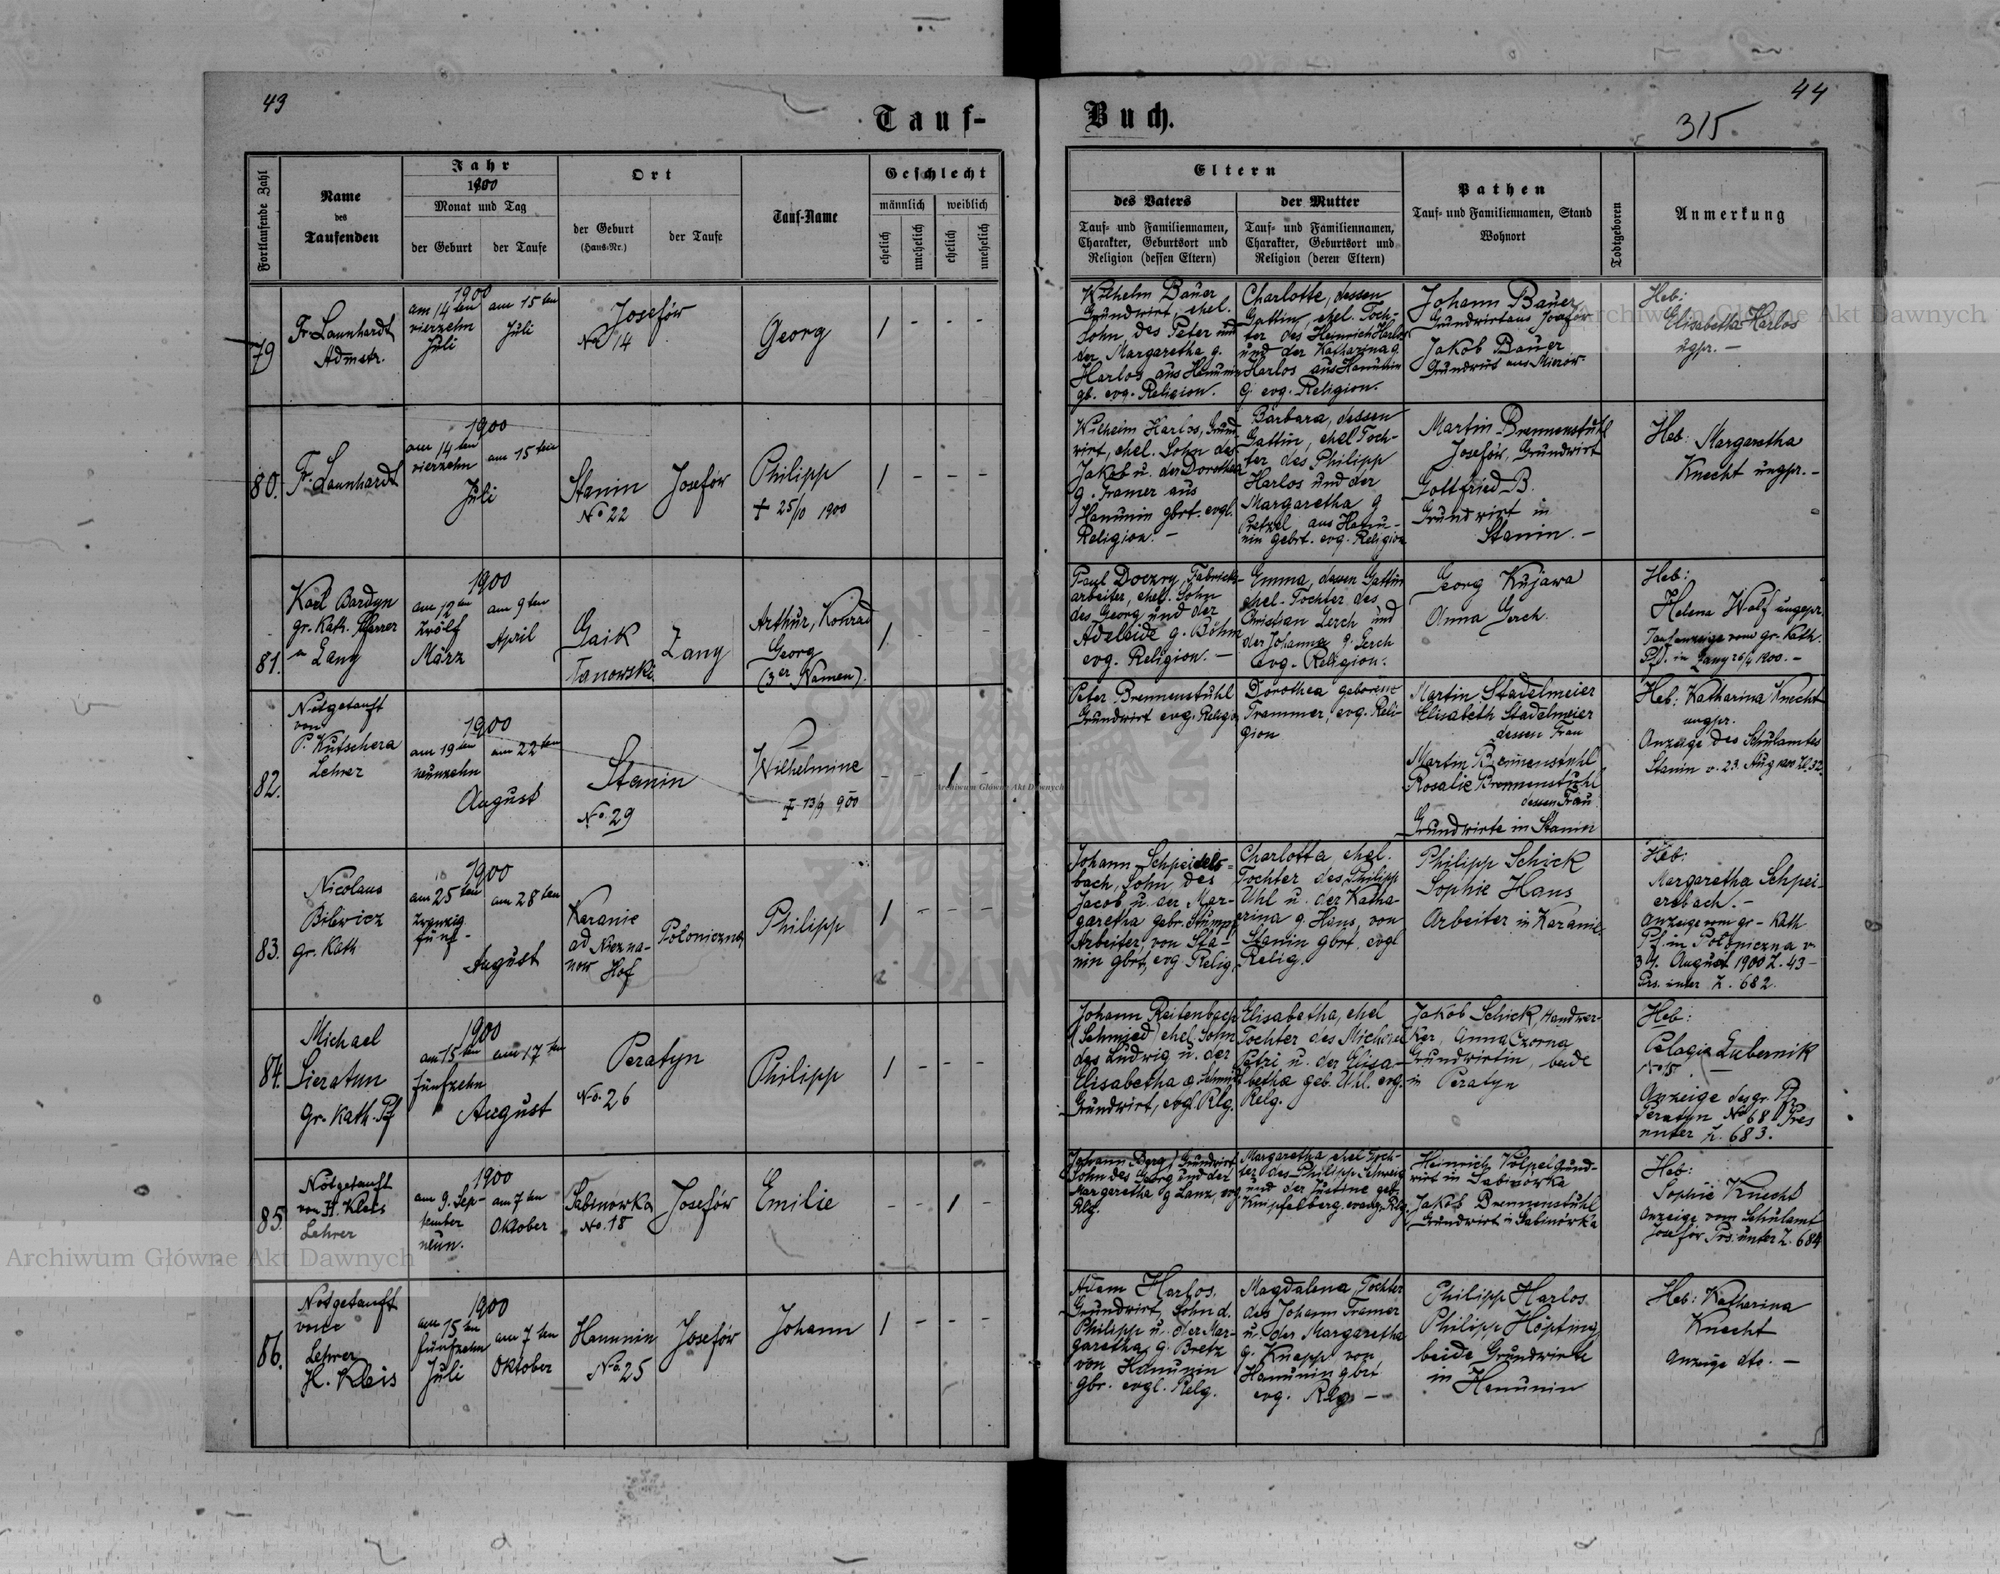 43
Tauf-
Fortlaufende Zahl
Name
des
Taufenden
Jahr
1900
Monat und Tag
der Geburt
der Taufe
Ort
der Geburt
(Haus-Nr.)
der Taufe
Tauf-Name
Geschlecht
männlich
weiblich
ehelich
unehelich
ehelich
unehelich
79
Fr. Launhardt
Admstr.
1900
am 14ten
vierzehn
Juli
am 15ten
Juli
Josefów
No 14
Georg
1 - - -
80.
Fr. Launhardt
1900
am 14ten
vierzehn
am 15ten
Juli
Stanin
No 22
Josefów
Philipp
+ 25/10 1900
1 - - -
81.
Karl Bardyn
gr. Kath. Pfarrer
Lany
1900
am 12ten
zwölf
März
am 9ten
April
Gaik
Lany
Arthur, Konrad
Georg
(3er Namen).
1 - -
82.
Notgetauft
von
P. Kutschera
Lehrer
1900
am 19ten
neunzehn
am 22ten
August
Stanin
No. 29
Wilhelmine
+ 13/9 900
- - 1 -
83.
Nicolaus
Bilewicz
gr. Kath
1900
am 25ten
zwanzig
fünf-
am 28ten
August
Karanie
ad Niezna-
now Hof
Poloniczna
Philipp
1 - - -
84.
Michael
Sieratyn
Gr. Kath. Pf
1900
am 15ten
fünfzehn
am 17ten
August
Peratyn
No. 26
Philipp
1 - - -
85.
Notgetauft
von H. Kleis
Lehrer
1900
am 9. Sep-
tember
neun.
am 7ten
Oktober
Sabinowka
No. 18
Josefów
Emilie
- - 1 -
86.
Notgetauft
Lehrer
H. Kleis
1900
am 15ten
fünfzehn
Juli
am 7ten
Oktober
Hanunin
No. 25
Josefów
Johann
1 - - -
44
Buch.
315
Eltern
des Vaters
Tauf- und Familiennamen,
Charakter, Geburtsort und
Religion (dessen Eltern)
der Mutter
Tauf- und Familiennamen,
Charakter, Geburtsort und
Religion (deren Eltern)
Pathen
Tauf- und Familiennamen, Stand
Wohnort
Todtgeboren
Anmerkung
Wilhelm Bauer
Grundwirt, ehel.
Sohn des Peter und
der Margaretha g.
Harlos aus Hanunin
gb. evg. Religion.
Charlotte, dessen
Gattin ehel. Toch-
ter des Heinrich Harlos
und der Katharina g.
Harlos aus Hanunin
g. evg. Religion.
Johann Bauer,
Grundwirt aus Josefów
Jakob Bauer
Grundwirt aus Mierów
Heb:
Elisabetha Harlos
ugpr. -
Wilhelm Harlos, Grund-
wirt, ehel. Sohn des
Jakob u. der Dorothea
g. Framer aus
Hanunin gbrt. evgl.
Religion. -
Barbara, dessen
Gattin, ehel Toch-
ter des Philipp
Harlos und der
Margaretha g
Bretzel aus Hanu-
nin gebrt. evg. Religion
Martin Brennenstuhl
Josefów, Grundwirt
Gottfried B.
Grundwirt in
Stanin. -
Heb: Margaretha
Knecht ungpr. -
Paul Doczry, Fabriks-
arbeiter, ehel. Sohn
des Georg und der
Adelaide g. Böhm
evg. Religion. -
Emma, dessen Gattin
ehel. Tochter des
Christian Lerch und
der Johanna g. Gerch
evg. Religion.
Georg Kujawa
Anna Gerch.
Heb:
Helena Wolf ungepr.
Taufanzeige vom gr. Kath.
Pf. in Lany 26/4 1900. -
Peter Brennenstuhl
Grundwirt evg. Religio
Dorothea geborene
Trammer, evg. Reli-
gion
Martin Stadelmeier
Elisabeth Stadelmeier
dessen Frau
Martin Brennenstuhl
Rosalie Brennenstuhl
dessen Frau
Grundwirte in Stanin
Heb: Katharina Knecht
ungpr.
Anzeige des Schulamtes
Stanin v. 23. Aug 1900 Zl. 32.
Johann Schpeiders-
bach, Sohn des
Jacob u. der Mar-
garetha gebr. Stumpf
Arbeiter, von Sta-
nin gbrt, evg. Relig.
Charlotta, ehel.
Tochter des Philipp
Uhl u. der Katha-
rina g. Hans, von
Stanin gbrt. evgl
Relig.
Philipp Schick
Sophie Hans
Arbeiter in Karanie.
Heb:
Margaretha Schpei-
ersbach. -
Anzeige vom gr - Kath
Pf. in Poloniczna v.
31. August 1900 Z. 43 -
Prs. unter Z. 682.
Johann Reitenbach
(Schmied) ehel. Sohn
des Ludwig u. der
Elisabetha g. Schmidt
Grundwirt, evgl. Rlg.
Elisabetha, ehel
Tochter des Michael
Petri u. der Elisa-
betha geb. Uhl. evg.
Relg.
Jakob Schick, Handwer-
ker, Anna Czorna
Grundwirtin, beide
in Peratyn
Heb:
Pelagia Lubernik
No 15
Anzeige des gr. Pf.
Peratyn No 68 Pres
unter Z. 683.
Johann Berg, Grundwirt
Sohn des Georg und der
Margaretha g Lanz, evg
Rlg.
Margaretha ehel Toch-
ter des Philipp Schweig
und der Justine geb.
Knipfelberg, evang. Rlg.
Heinrich Völpel Grund-
wirt in Sabinowka
Jakob Brennenstuhl
Grundwirt in Sabinówka
Heb:
Sophie Knecht
Anzeige vom Schulamt
Josefów Prs: unter Z. 684
Adam Harlos,
Grundwirt, Sohn d.
Philipp u. der Mar-
garetha g. Bretz
von Hanunin
gbr. evgl. Relg.
Magdalena Tochter
des Johann Framer
u. der Margaretha
g. Knapp von
Hanunin gbrt
evg. Relg. -
Philipp Harlos
Philipp Höpting
beide Grundwirte
in Hanunin
Heb: Katharina
Knecht
Anzeige dto. -
Archiwum Główne Akt Dawnych
Archiwum Główne Akt Dawnych
Archiwum Główne Akt Dawnych